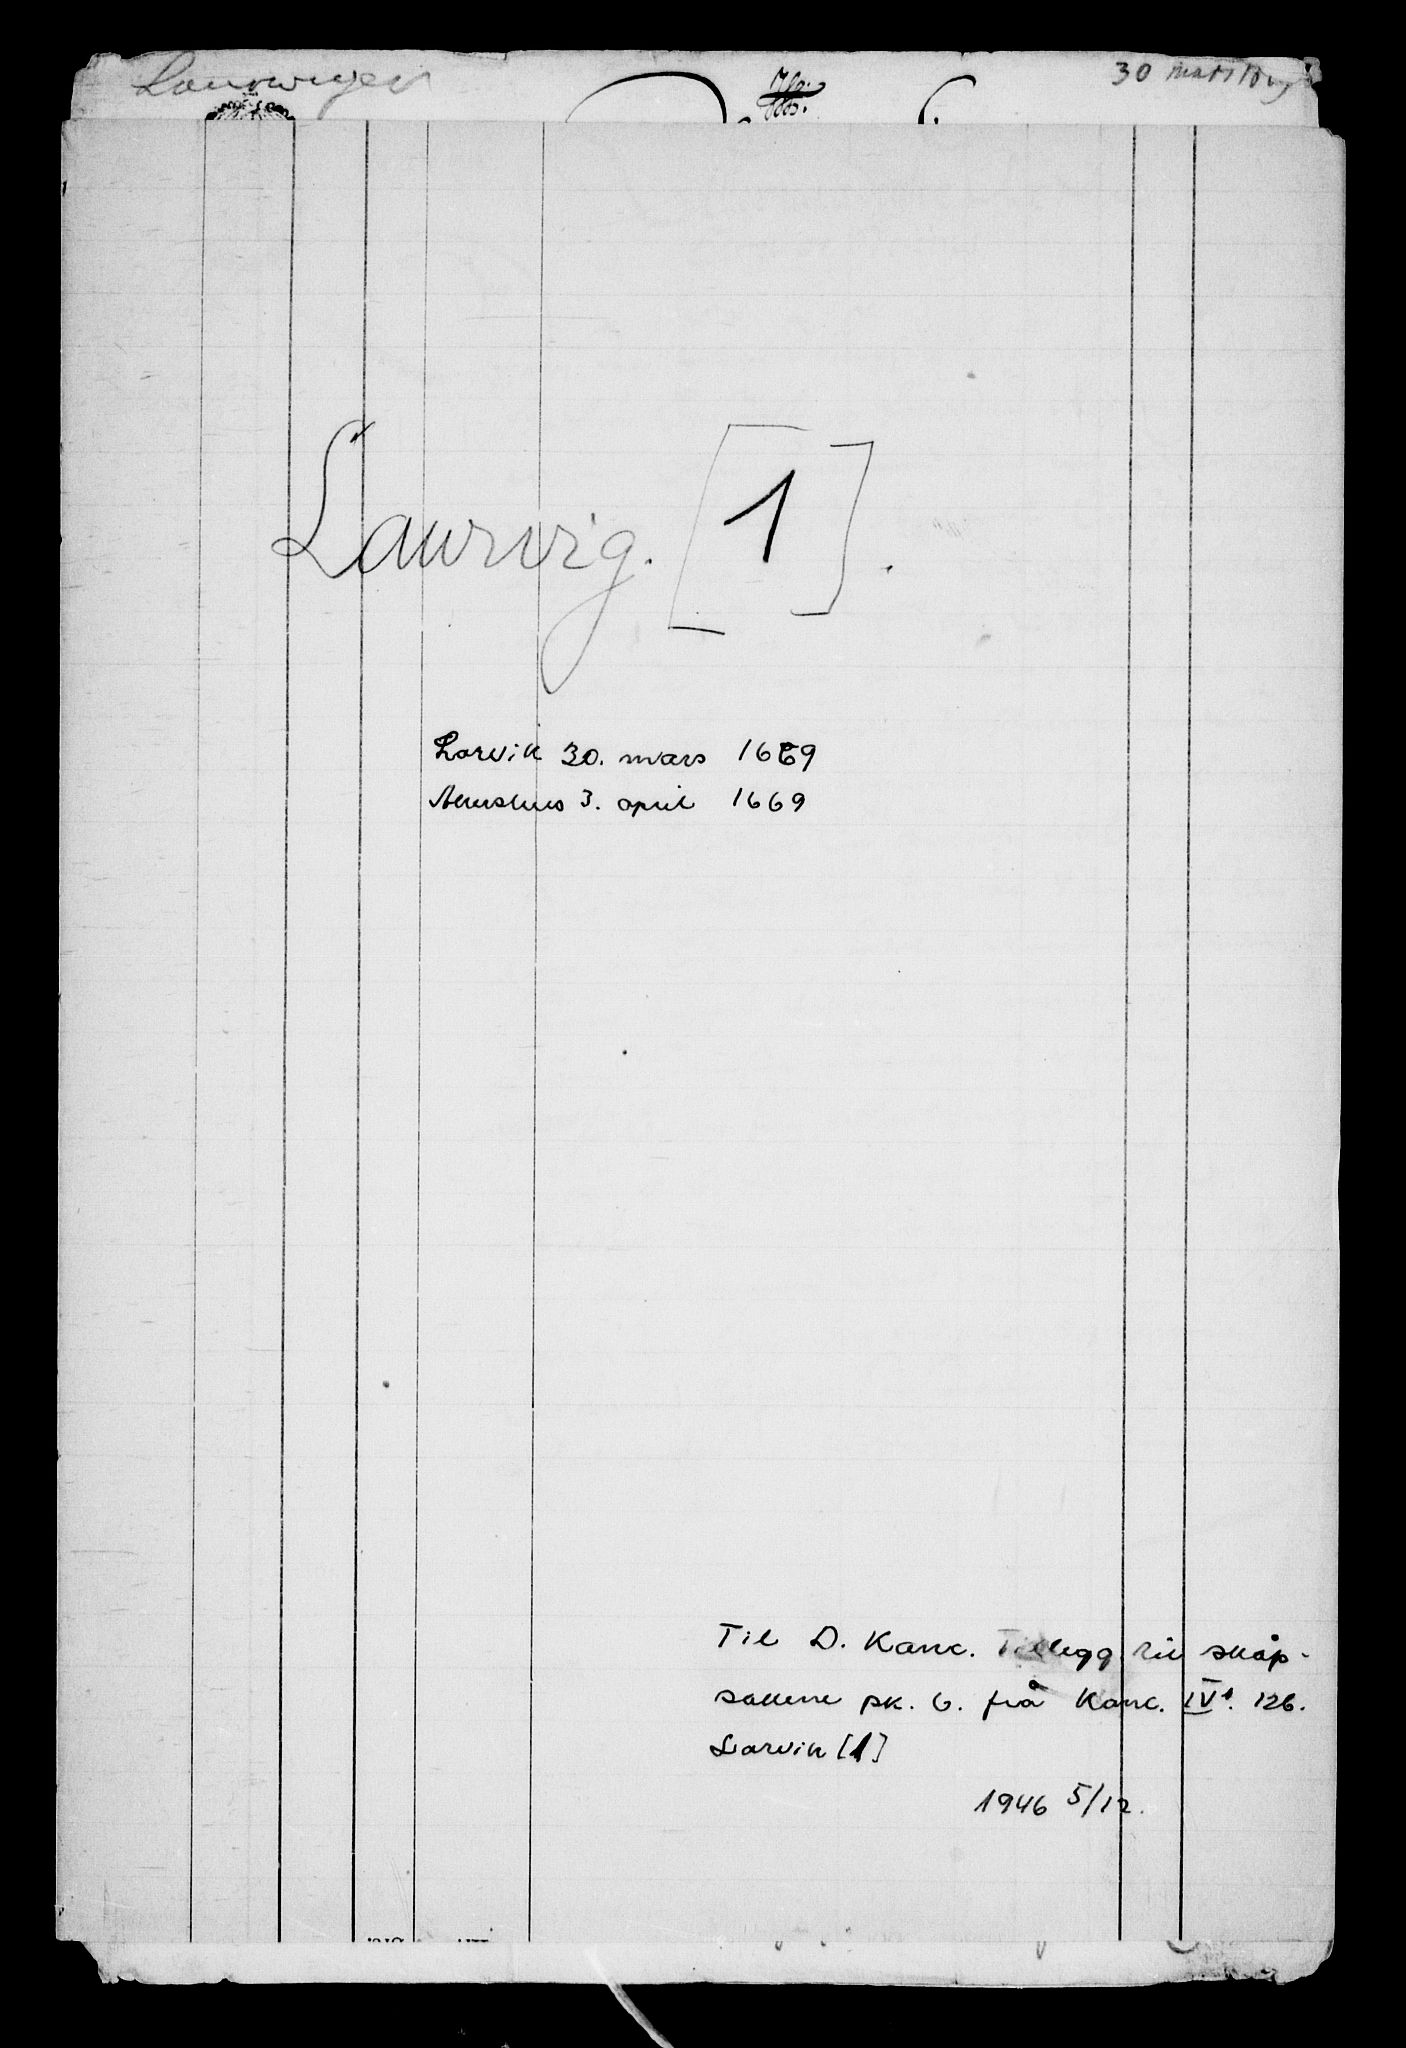 30 mars 16
Laurvig. [1].
Larvik 30. mars 1669
Akershus 3. april 1669
Til D. Kanc. Tillegg til skåp-
sakene pk. 6. frå Kanc. IV¹. 126.
Larvik [1]
1946 5/12.